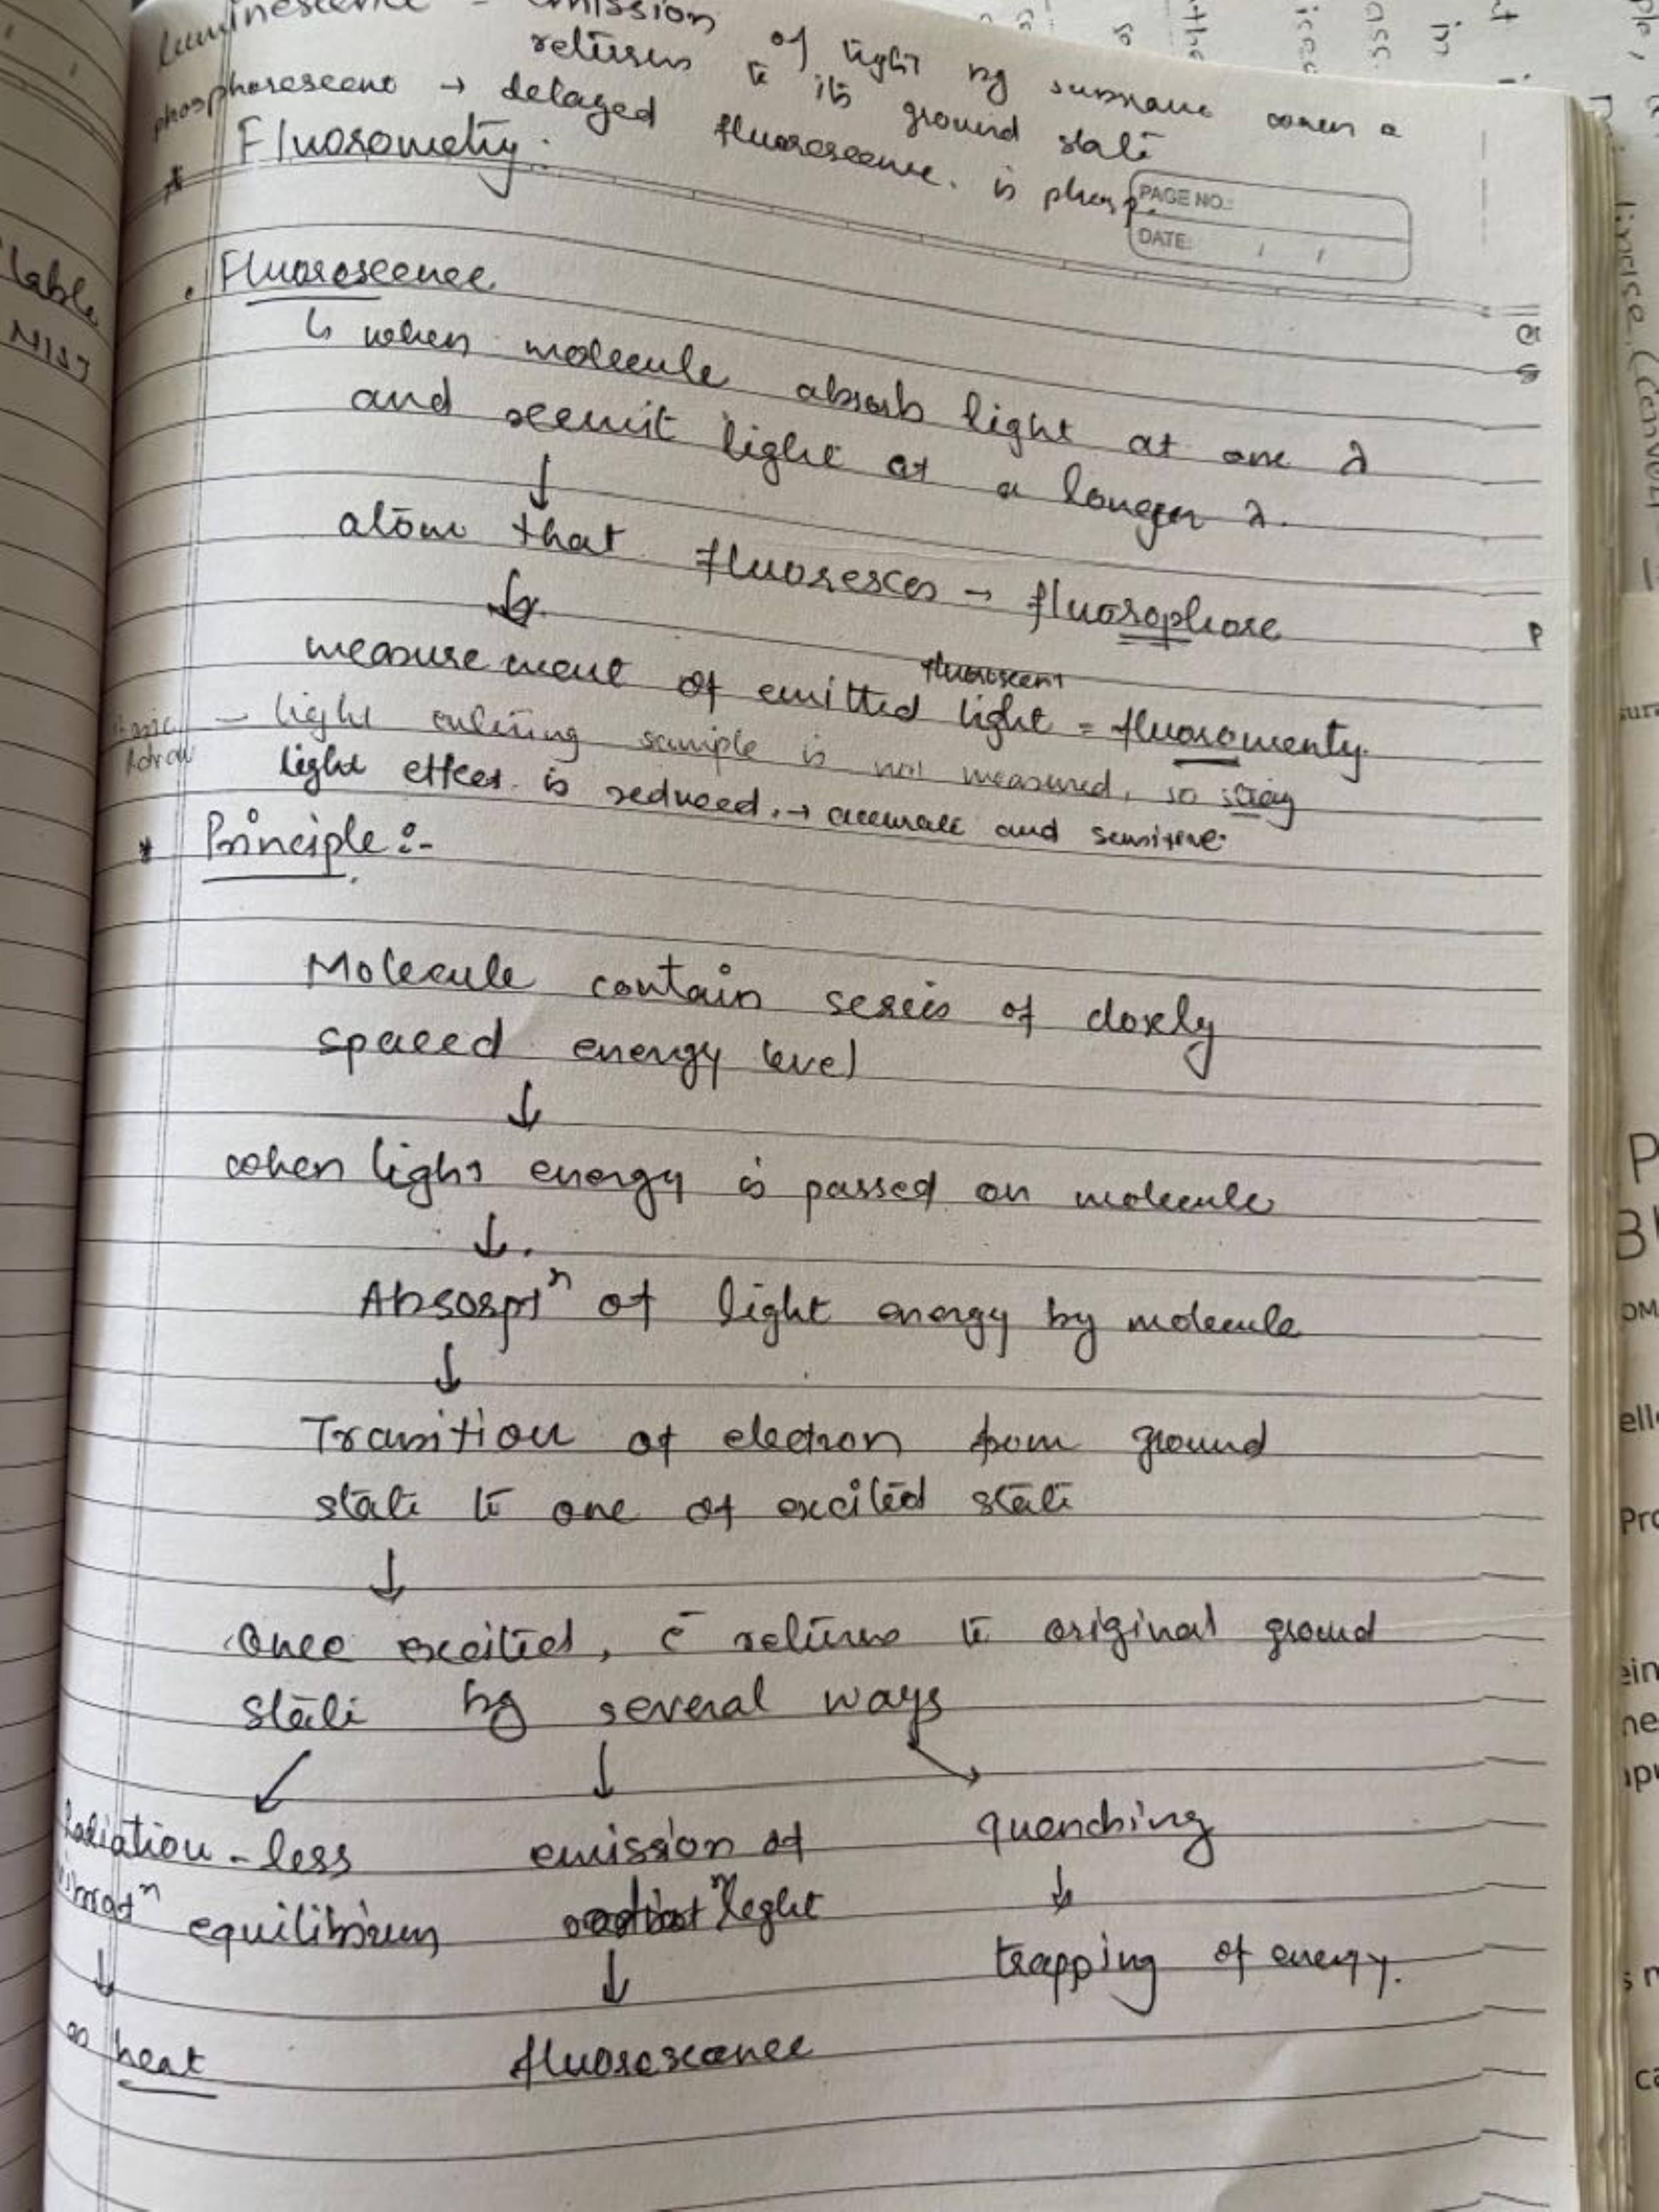 luminescence - emission of light by substance when a
returns to its ground state
phosphorescent → delayed fluorescence. is phosp.
* Fluorometry.
PAGE NO.:
DATE: / /
. Fluorescence
↳ when molecule absorb light at one λ
and reemit light at a longer λ.
↓
atom that fluoresces → fluorophore
↓
fluorescent
measurement of emitted light = fluoromenty.
- light entering sample is not measured, so stray
light effect is reduced. → accurate and sensitive.
* Principle :-
Molecule contain series of closely
spaced energy level
↓
when light energy is passed on molecule
↓.
Absorptⁿ of light energy by molecule
↓
Transition of electron from ground
state to one of excited state
↓
Once excited, ē returns to original ground
state by several ways
Radiation-less emission of quenching
vibratⁿ equilibrium light ↓
trapping of energy.
↓ ↓
as heat fluorescence